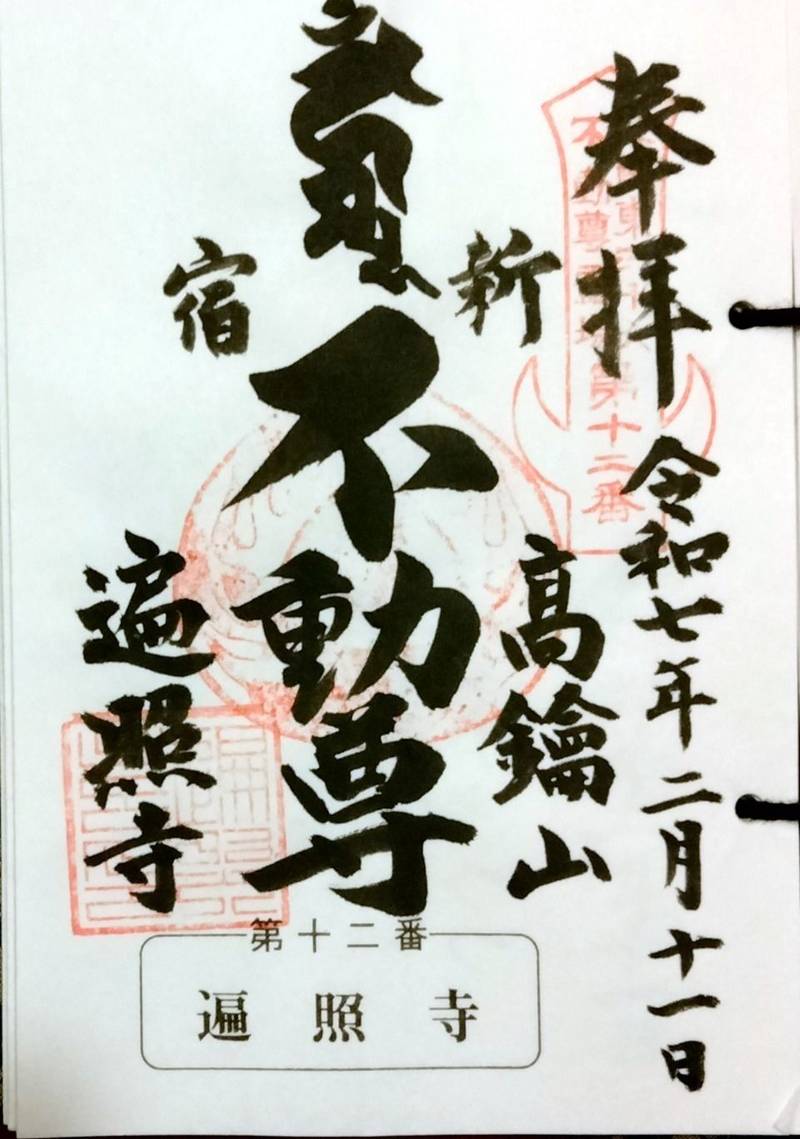 奉拝
令和七年二月十一日
第十二番
新
高鑰山
不動尊
宿
遍照寺
第十二番
遍照寺